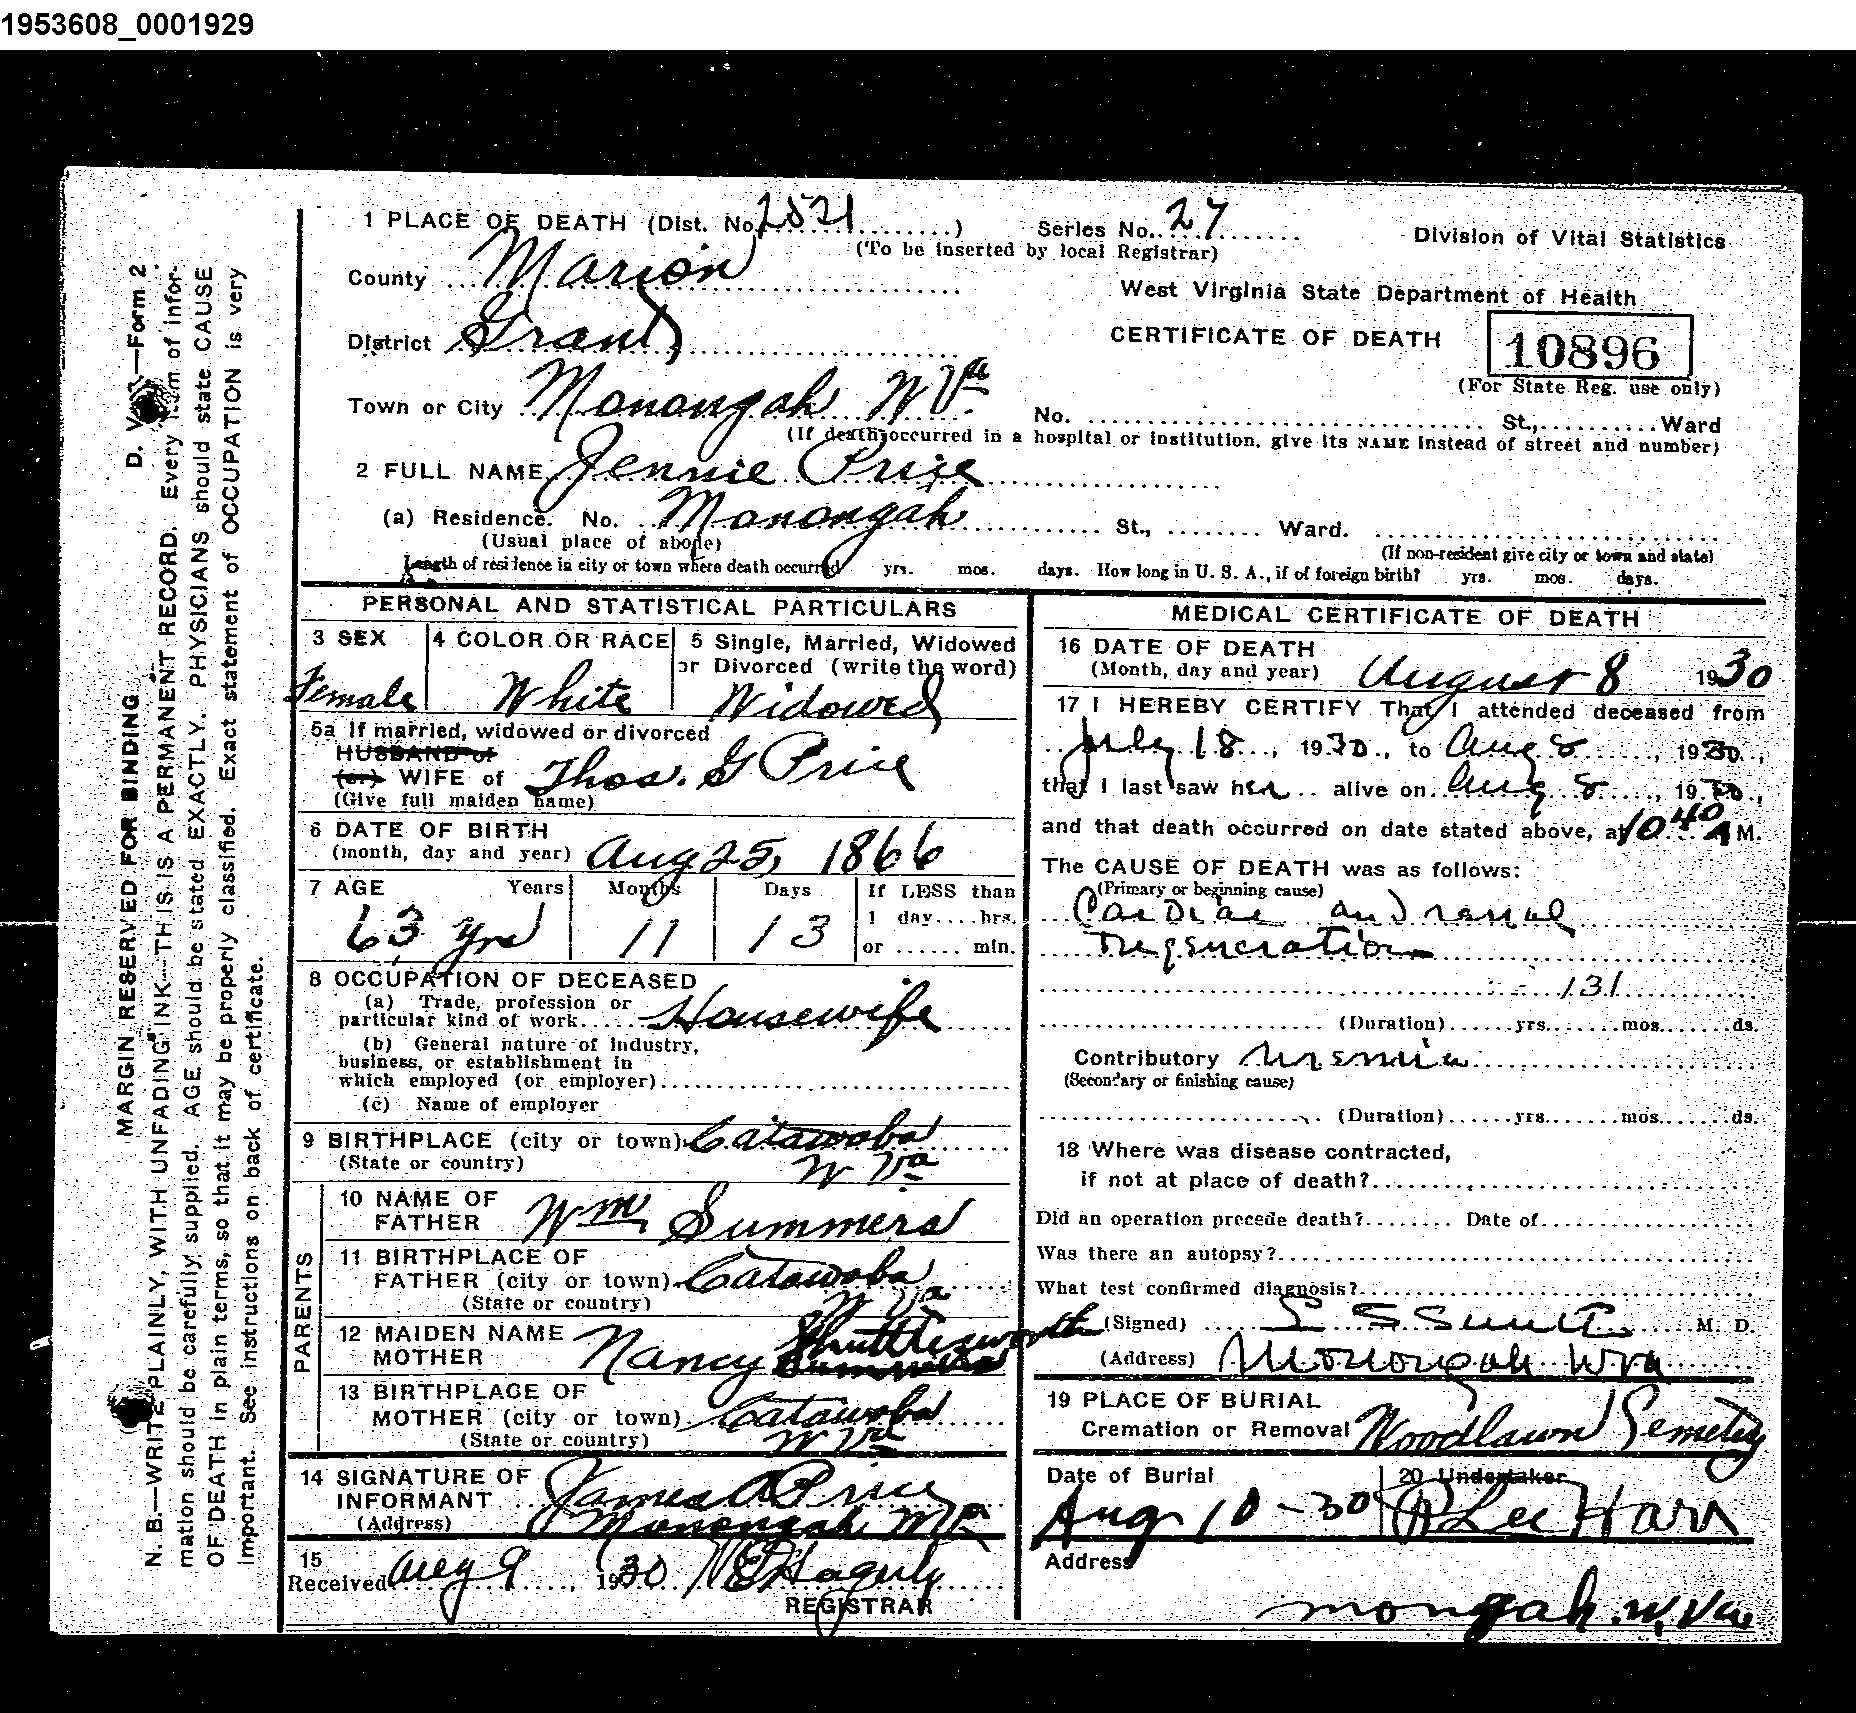 1953608_0001929
1 PLACE OF DEATH (Dist. No. 2521 ) Series No. 27 Division of Vital Statistics
(To be inserted by local Registrar)
County Marion West Virginia State Department of Health
District Grant CERTIFICATE OF DEATH 10896
(For State Reg. use only)
Town or City Monongah W Va No. St., Ward
(If death occurred in a hospital or institution, give its NAME instead of street and number)
2 FULL NAME Jennie Price
(a) Residence. No. Monongah St., Ward.
(Usual place of abode) (If non-resident give city or town and state)
Length of residence in city or town where death occurred yrs. mos. days. How long in U. S. A., if of foreign birth? yrs. mos. days.
PERSONAL AND STATISTICAL PARTICULARS
3 SEX 4 COLOR OR RACE 5 Single, Married, Widowed
or Divorced (write the word)
Female White Widowed
5a If married, widowed or divorced
HUSBAND of
(or) WIFE of Thos. G Price
(Give full maiden name)
6 DATE OF BIRTH
(month, day and year) Aug 25, 1866
7 AGE Years Months Days If LESS than
1 day....hrs.
63 yrs 11 13 or ...... min.
8 OCCUPATION OF DECEASED
(a) Trade, profession or
particular kind of work Housewife
(b) General nature of industry,
business, or establishment in
which employed (or employer)
(c) Name of employer
9 BIRTHPLACE (city or town) Catawoba
(State or country) W Va
PARENTS
10 NAME OF
FATHER Wm Summers
11 BIRTHPLACE OF
FATHER (city or town) Catawoba
(State or country) W Va
12 MAIDEN NAME
MOTHER Nancy Shuttlesworth
Summers
13 BIRTHPLACE OF
MOTHER (city or town) Catawoba
(State or country) W Va
14 SIGNATURE OF
INFORMANT James A Price
(Address) Monongah W Va
15
Received Aug 9, 1930
REGISTRAR
MEDICAL CERTIFICATE OF DEATH
16 DATE OF DEATH
(Month, day and year) August 8 1930
17 I HEREBY CERTIFY That I attended deceased from
July 18, 1930, to Aug 8, 1930,
that I last saw her alive on Aug 8, 1930,
and that death occurred on date stated above, at 10 40 A M.
The CAUSE OF DEATH was as follows:
(Primary or beginning cause)
Cardiac and renal
Degeneration
131
(Duration) yrs. mos. ds.
Contributory Uremia
(Secondary or finishing cause)
(Duration) yrs. mos. ds.
18 Where was disease contracted,
if not at place of death?
Did an operation precede death? Date of
Was there an autopsy?
What test confirmed diagnosis?
(Signed) M. D.
(Address) Monongah W Va
19 PLACE OF BURIAL
Cremation or Removal Woodlawn Cemetery
Date of Burial 20 Undertaker
Aug 10-30 R Lee Harr
Address
Mongah. W. Va
MARGIN RESERVED FOR BINDING D. V. —Form 2
N. B.—WRITE PLAINLY, WITH UNFADING INK—THIS IS A PERMANENT RECORD. Every item of infor-
mation should be carefully supplied. AGE should be stated EXACTLY. PHYSICIANS should state CAUSE
OF DEATH in plain terms, so that it may be properly classified. Exact statement of OCCUPATION is very
important. See instructions on back of certificate.